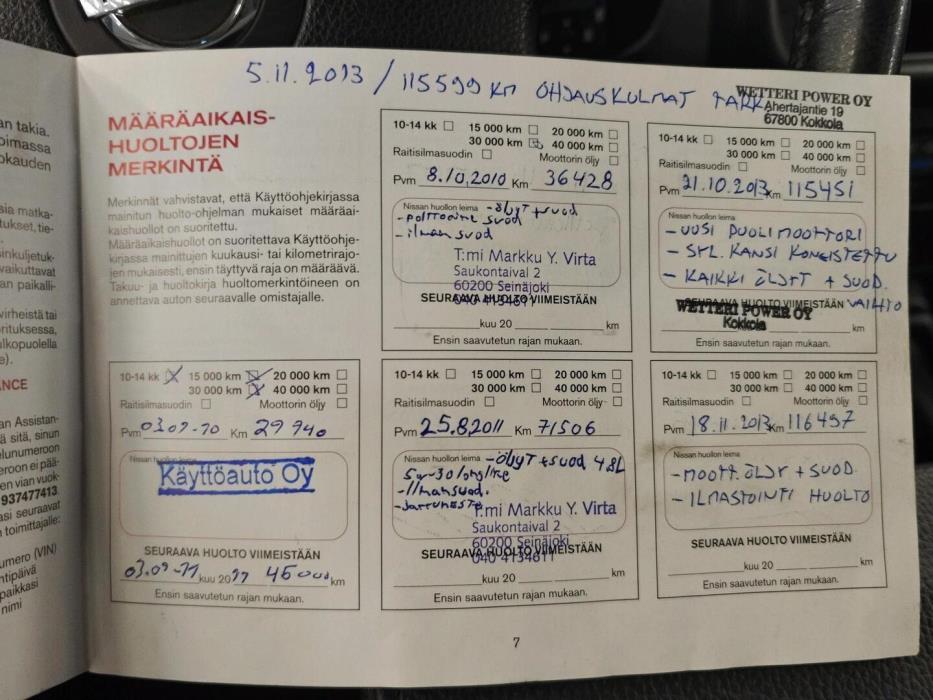 5.11.2013 / 115599 km OHJAUSKULMAT TARK
WETTERI POWER OY
Ahertajantie 19
67800 Kokkola
MÄÄRÄAIKAIS-
HUOLTOJEN
MERKINTÄ
Merkinnät vahvistavat, että Käyttöohjekirjassa
mainitun huolto-ohjelman mukaiset määräai-
kaishuollot on suoritettu.
Määräaikaishuollot on suoritettava Käyttöohje-
kirjassa mainittujen kuukausi- tai kilometrirajo-
jen mukaisesti, ensin täyttyvä raja on määräävä.
Takuu- ja huoltokirja huoltomerkintöineen on
annettava auton seuraavalle omistajalle.
10-14 kk 15 000 km 20 000 km
30 000 km 40 000 km
Raitisilmasuodin Moottorin öljy
Pvm 8.10.2010 Km 36428
Nissan huollon leima - öljyt + suod
- polttoaine suod
- ilman suod
T:mi Markku Y. Virta
Saukontaival 2
60200 Seinäjoki
040 4134611
SEURAAVA HUOLTO VIIMEISTÄÄN
kuu 20 km
Ensin saavutetun rajan mukaan.
10-14 kk 15 000 km 20 000 km
30 000 km 40 000 km
Raitisilmasuodin Moottorin öljy
Pvm 21.10.2013 Km 115451
Nissan huollon leima
- UUSI PUOLIMOOTTORI
- SYL. KANSI KONEISTETTU
- KAIKKI ÖLJYT + SUOD.
VAIHTO
SEURAAVA HUOLTO VIIMEISTÄÄN
WETTERI POWER OY
Kokkola
km
Ensin saavutetun rajan mukaan.
10-14 kk 15 000 km 20 000 km
30 000 km 40 000 km
Raitisilmasuodin Moottorin öljy
Pvm 03.09-10 Km 29 940
Nissan huollon leima
Käyttöauto Oy
SEURAAVA HUOLTO VIIMEISTÄÄN
03.09-11 kuu 20 45000 km
Ensin saavutetun rajan mukaan.
10-14 kk 15 000 km 20 000 km
30 000 km 40 000 km
Raitisilmasuodin Moottorin öljy
Pvm 25.8.2011 Km 71506
Nissan huollon leima - öljyt + suod 4.8L
5w-30 longlife
- Ilmansuod.
- Jarruneste
T:mi Markku Y. Virta
Saukontaival 2
60200 Seinäjoki
040 4134611
SEURAAVA HUOLTO VIIMEISTÄÄN
kuu 20 km
Ensin saavutetun rajan mukaan.
10-14 kk 15 000 km 20 000 km
30 000 km 40 000 km
Raitisilmasuodin Moottorin öljy
Pvm 18.11.2013 Km 116497
Nissan huollon leima
- MOOTT. ÖLJY + SUOD.
- ILMASTOINTI HUOLTO
SEURAAVA HUOLTO VIIMEISTÄÄN
kuu 20 km
Ensin saavutetun rajan mukaan.
7